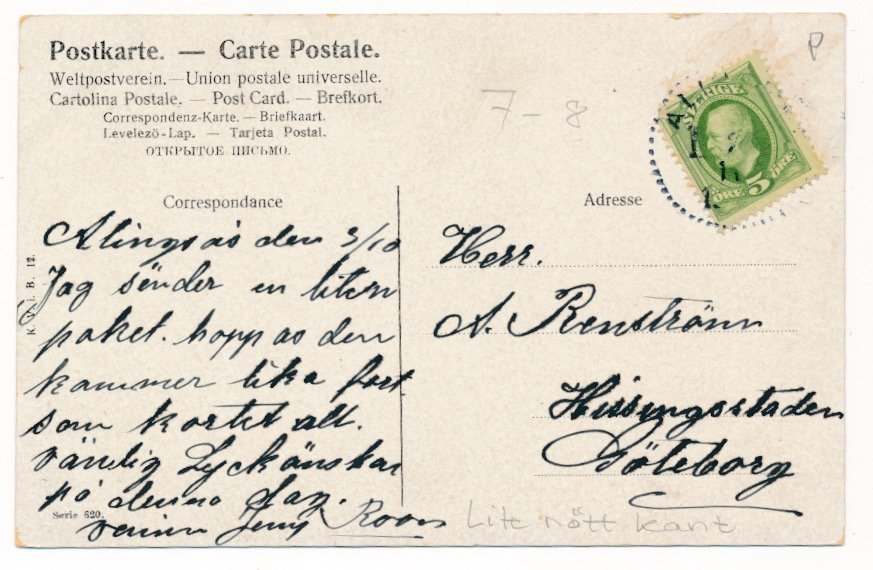 Postkarte. — Carte Postale.
Weltpostverein. — Union postale universelle.
Cartolina Postale. — Post Card. — Brefkort.
Correspondenz-Karte. — Briefkaart.
Levelező-Lap. — Tarjeta Postal.
ОТКРЫТОЕ ПИСЬМО.
P
7-8
SVERIGE
ÖRE 5 ÖRE
Correspondance
Alingsås den 3/10
Jag sënder en liten
paket. hopp as den
kammer lika fort
som kortet alt.
vändig Lyckönskan
på denna dag.
Jenny Roos
Serie 620.
Adresse
Herr.
A. Renström
Hissingsstaden
Göteborg
Lite nött kant